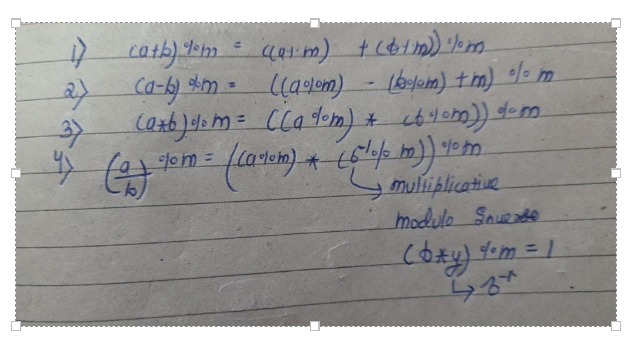 1) (a+b) % m = ((a % m) + (b % m)) % m
2) (a-b) % m = ((a % m) - (b % m) + m) % m
3) (a*b) % m = ((a % m) * (b % m)) % m
4) (a/b) % m = ((a % m) * (b⁻¹ % m)) % m
↳ multiplicative
modulo Inverse
(b*y) % m = 1
↳ b⁻¹